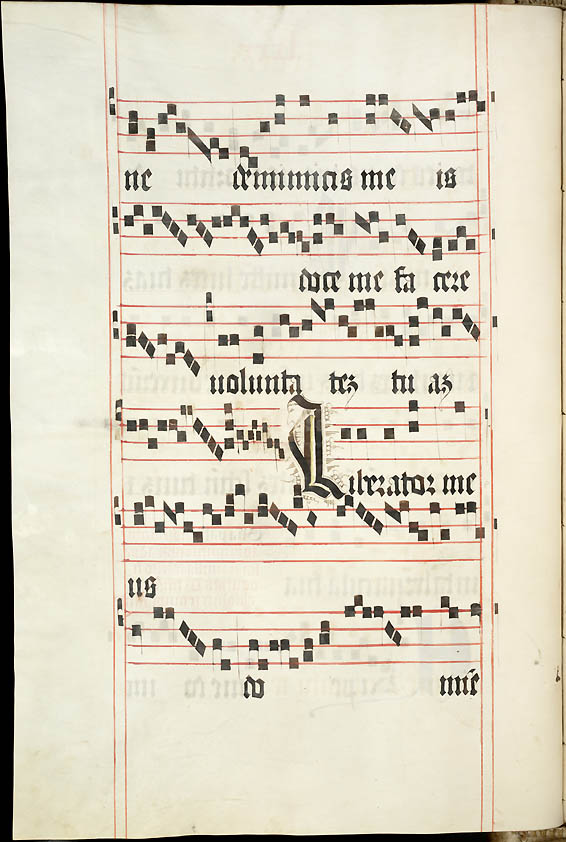 ne deinimicis me is
doce me fa cere
uolunta tez tu az
Liberator me
us
do mīe